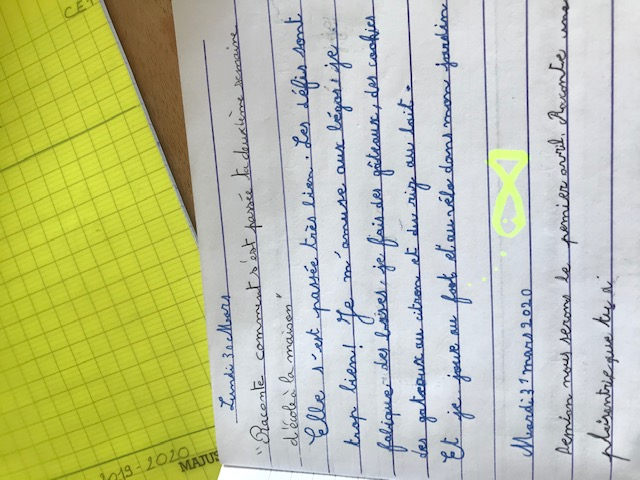 C.E.1
2019-2020
MAJUS
Lundi 30 Mars
"Raconte comment s'est passée ta deuxième semaine
d'école à la maison"
Elle s'est passée très bien. Les défis sont
trop bien! Je m'amuse aux légos, je
fabrique des bases, je fais des gâteaux, des cookies
des gateaux au citron et du riz au lait.
Et je joue au foot et au vélo dans mon jardin
Mardi 31 mars 2020
Demain nous serons le premier avril. Raconte une
plaisanterie que tu a